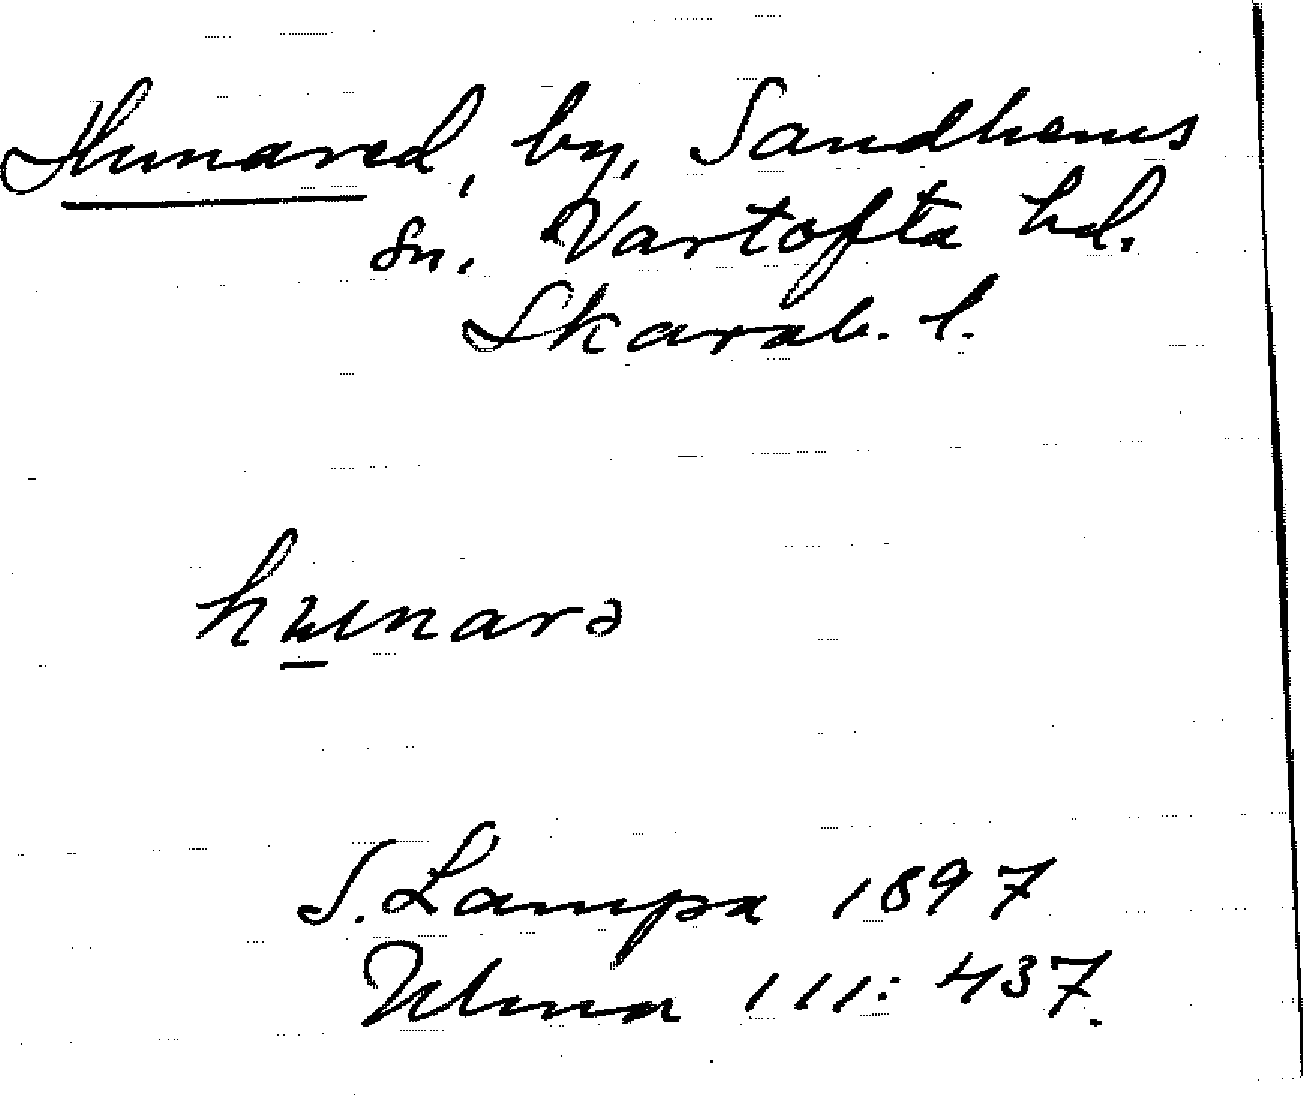 Hunared, by, Sandhems
sn. Vartofta hd.
Skarab. l.
hunarə
S. Lampa 1897
Ulma 111: 437.